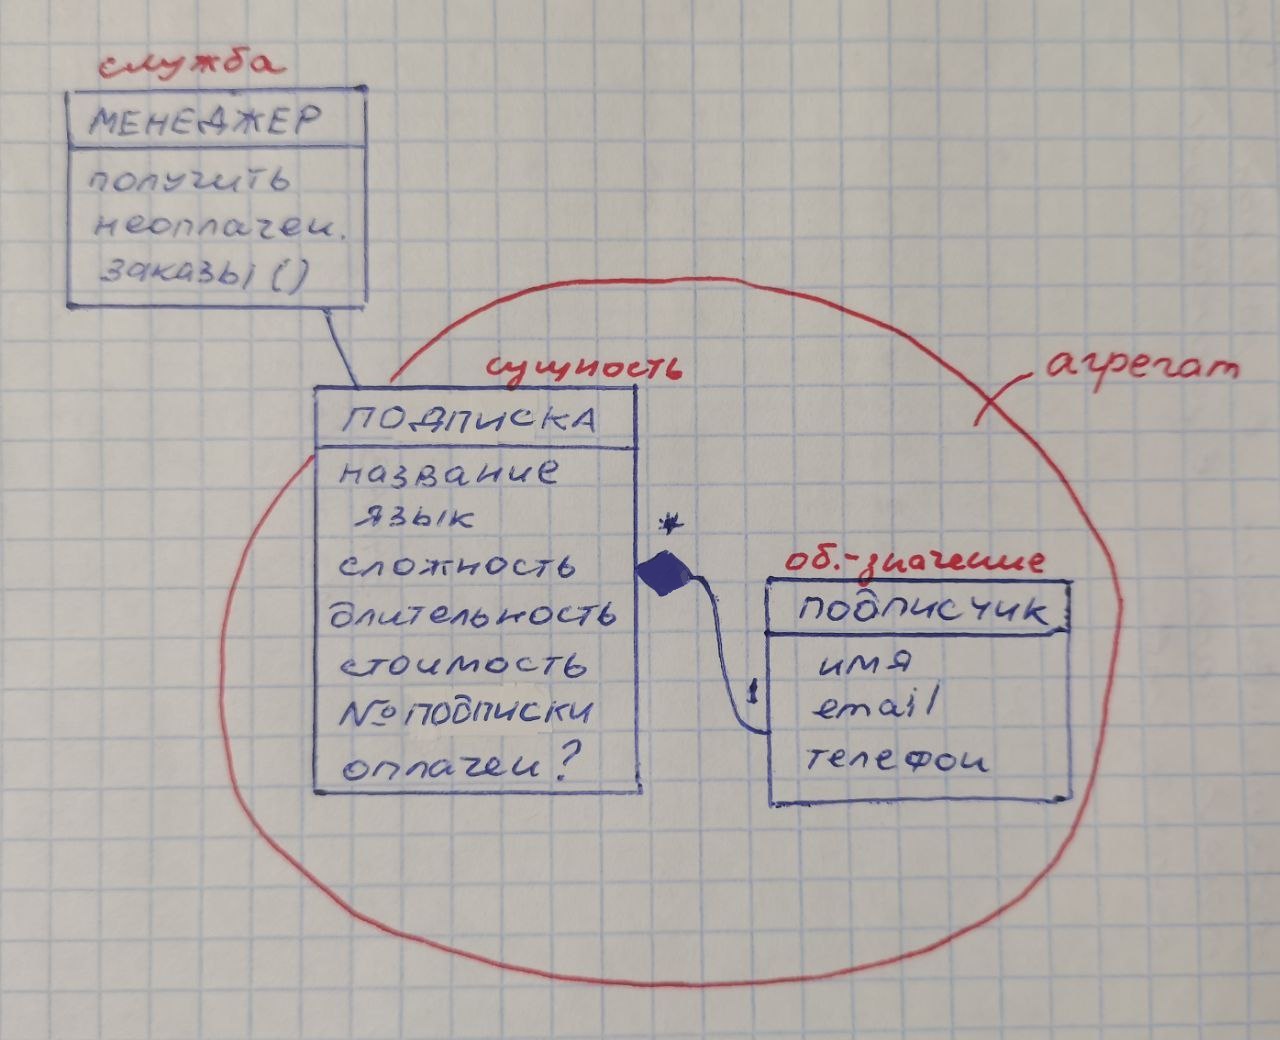 служба
МЕНЕДЖЕР
получить
неоплачен.
заказы ()
сущность
агрегат
ПОДПИСКА
название
язык
сложность
длительность
стоимость
№ подписки
оплачен?
*
1
об.-значение
ПОДПИСЧИК
имя
email
телефон